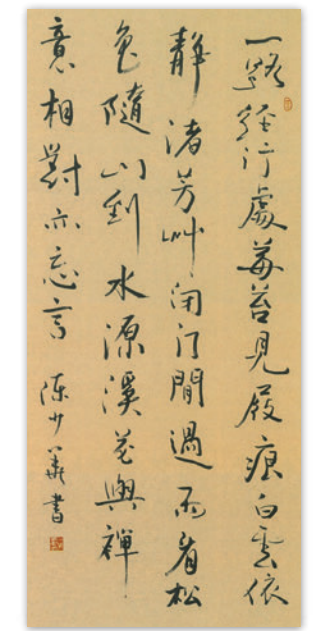 一路經行處莓苔見屐痕白雲依
靜渚芳艸閉門閒過雨看松
色隨山到水源溪花與禪
意相對亦忘言 陳少華書